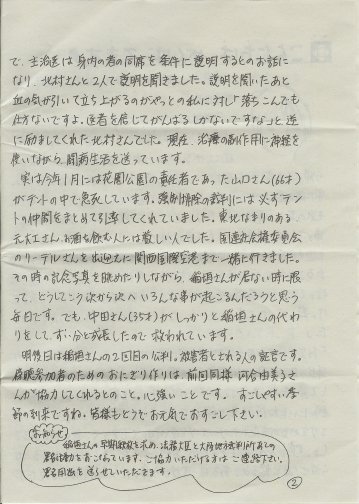 で、主治医は身内の者の同席を条件に説明するとのお話に
なり、北村さんと2人で説明を聞きました。説明を聞いたあと
血の気が引いて立ち上がるのがやっとの私に対し「落ちこんでも
仕方ないですよ。医者を信じてがんばるしかないですな」と逆
に励ましてくれた北村さんでした。現在、治療の副作用に神経を
使いながら、闘病生活を送っています。
実は今年1月には花園公園の責任者であった山口さん(66才)
がテントの中で急死しています。強制排除の裁判には必ずテン
トの仲間をまとめて引率してくれていました。東北なまりのある
元大工さん、お酒を飲む人には厳しい人でした。国連社会権委員会
のリーデルさんを出迎えに関西国際空港まで一緒に行きました。
その時の記念写真を眺めたりしながら、稲垣さんが居ない時に限
って、どうしてこう次から次へいろんな事が起こるんだろうと思う
毎日です。でも、中田さん(35才)がしっかりと稲垣さんの代わ
りをして、ずい分と成長したので救われています。
明後日は稲垣さんの2回目の公判。被害者とされる人の証言です。
傍聴参加者のためのおにぎり作りは、前回同様 河合由美子さ
んが協力してくれるとのこと。心強いことです。すごしやすい季
節の到来ですね。皆様もどうぞお元気でおすごし下さい。
おねがい
稲垣さんの早期釈放を求め、法務大臣と大阪地方裁判所あての
署名活動をおこなっています。ご協力いただける方はご連絡下さい。
署名用紙を送らせていただきます。
②